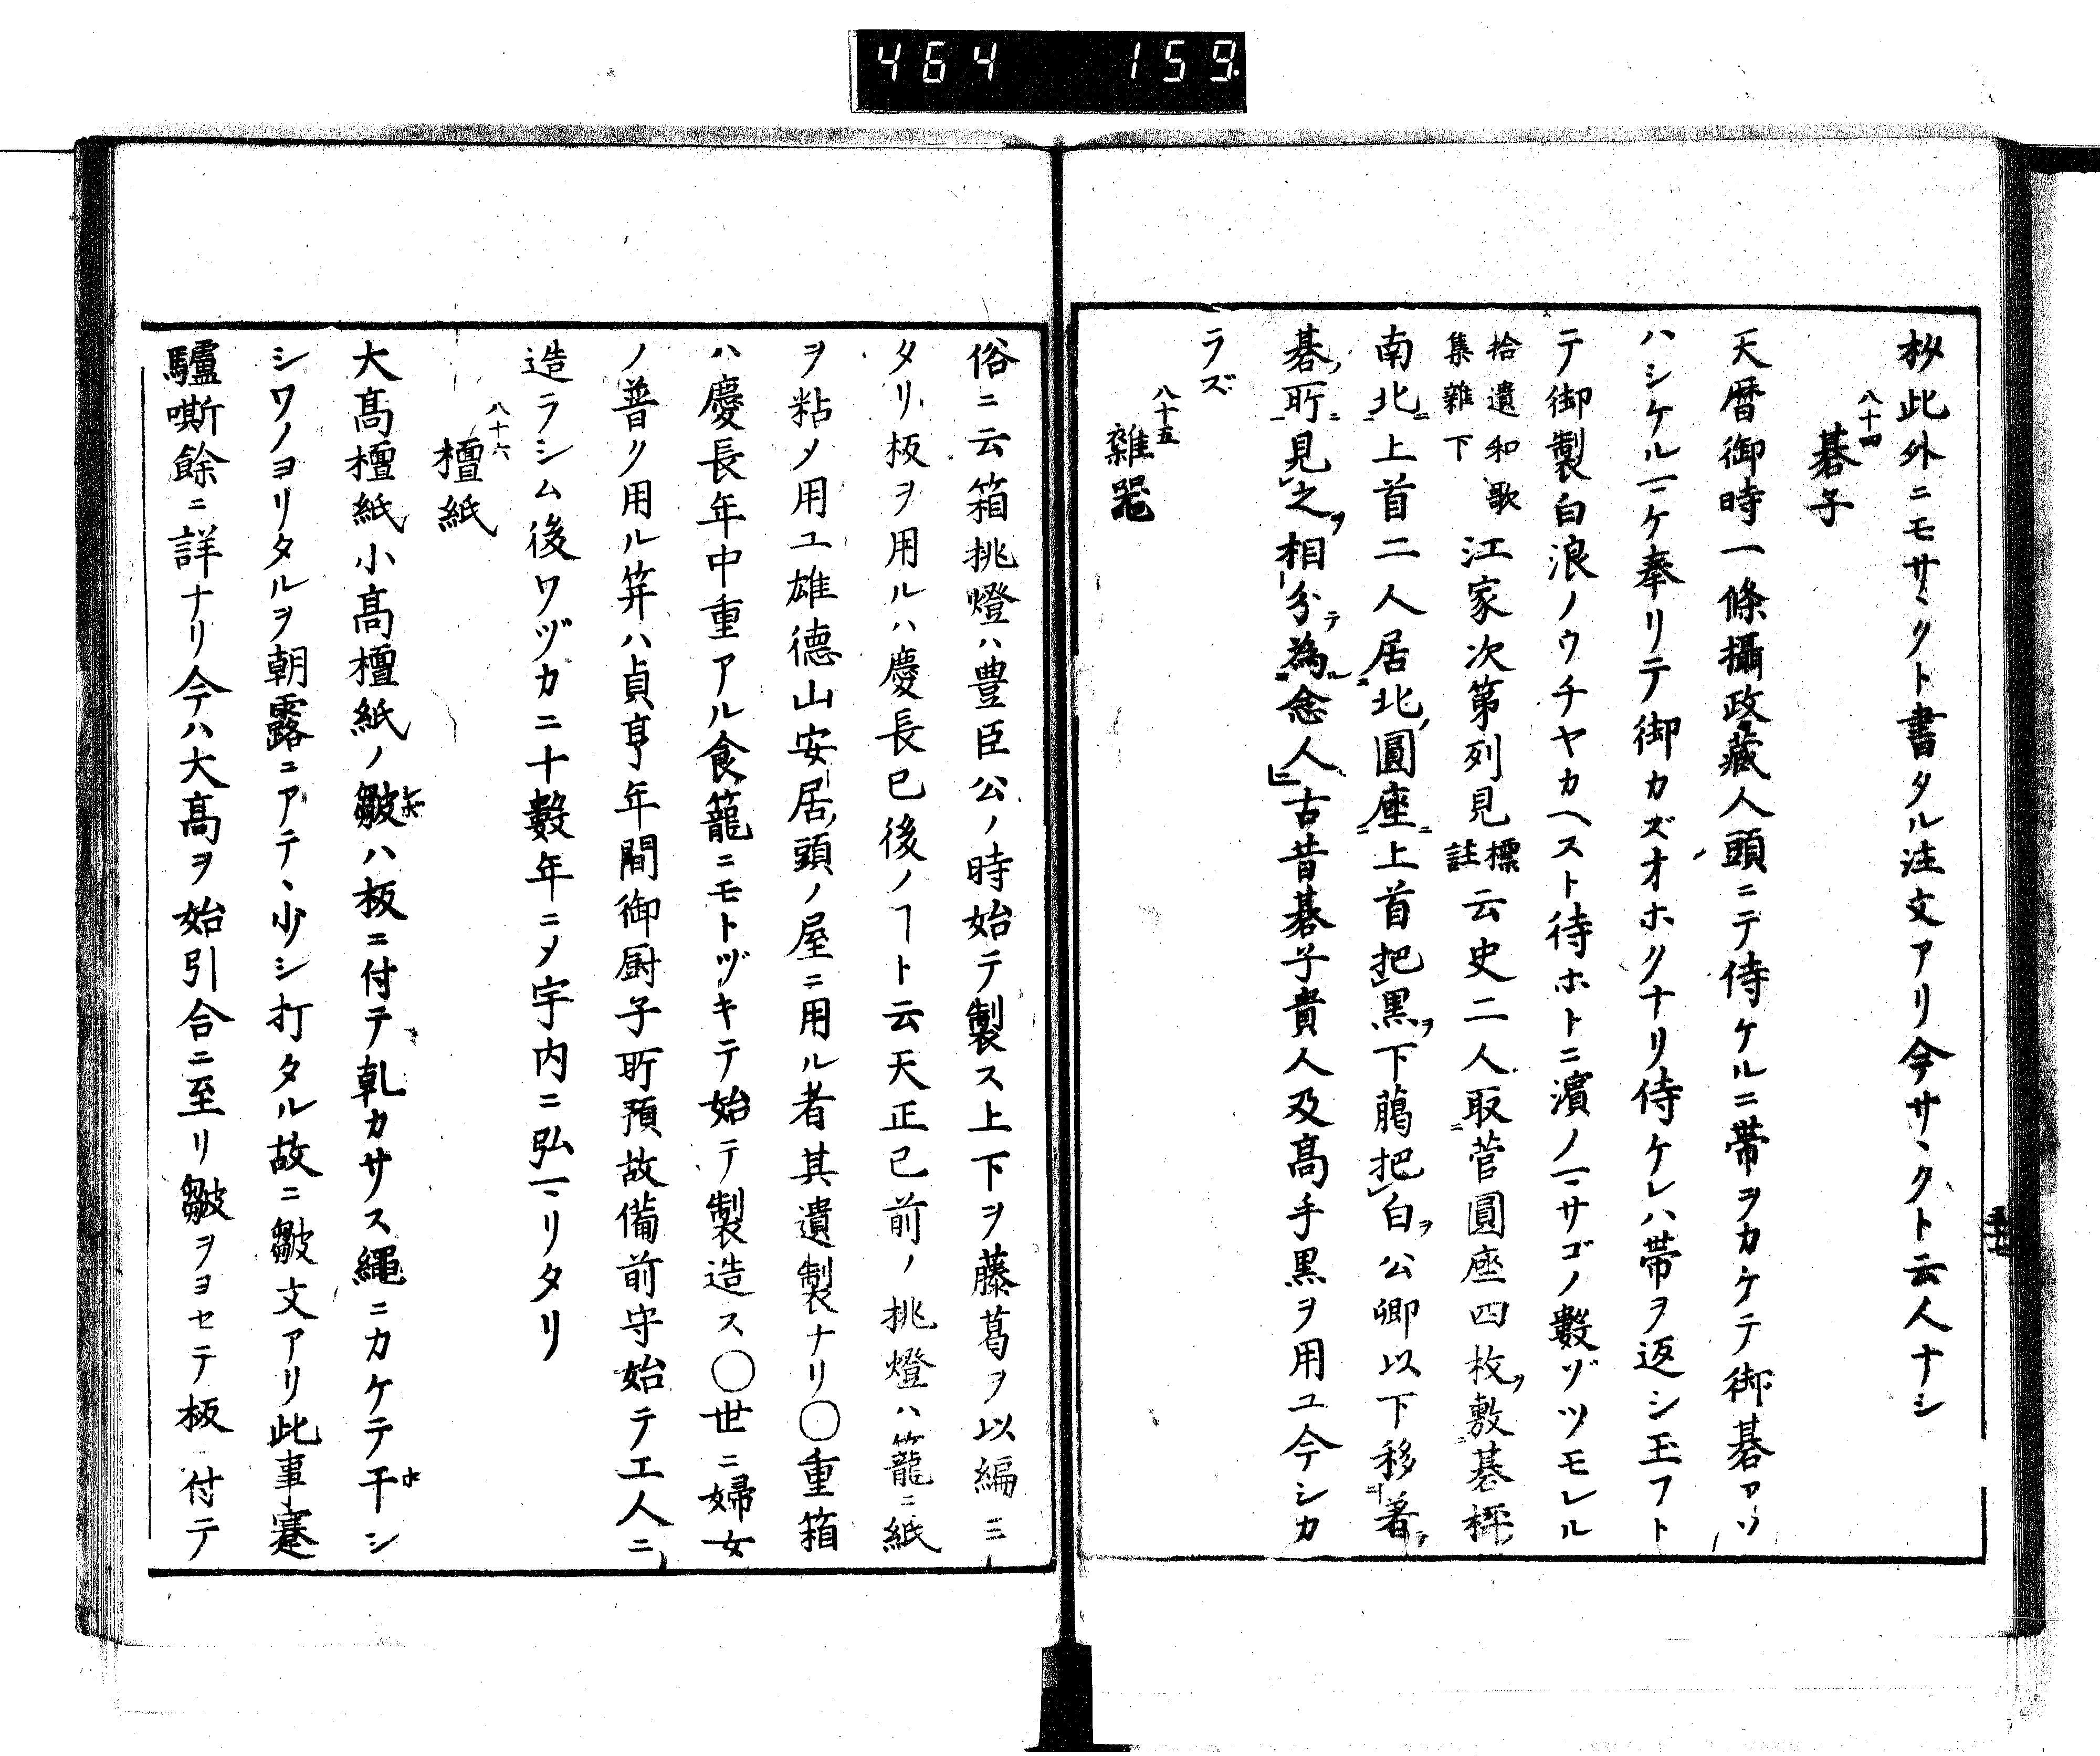 464 159
杪此外ニモサヽクト書タル注文アリ今サヽクト云人ナシ
八十四
碁子
天暦御時一條攝政藏人頭ニテ侍ケルニ帯ヲカケテ御碁アソ
ハシケルニマケ奉リテ御カズオホクナリ侍ケレハ帯ヲ返シ玉フト
テ御製白浪ノウチヤカヘスト待ホトニ濱ノマサゴノ數ヅツモレル
拾遺和歌
集雜下
江家次第列見
標
註
云史二人取菅圓座四枚ヲ敷碁枰ノ
南北ニ上首二人居北ノ圓座ニ上首把黒ヲ下﨟把白ヲ公卿以下移著
碁ノ所ニ見之ヲ相分テ為ル念人ト古昔碁子貴人及高手黒ヲ用ユ今シカ
ラズ
八十五
雜噐
俗ニ云箱挑燈ハ豊臣公ノ時始テ製ス上下ヲ藤葛ヲ以編ミ
タリ板ヲ用ルハ慶長已後ノヿト云天正已前ノ挑燈ハ籠ニ紙
ヲ粘メ用ユ雄德山安居頭ノ屋ニ用ル者其遺製ナリ〇重箱
ハ慶長年中重アル食籠ニモトヅキテ始テ製造ス〇世ニ婦女
ノ普ク用ル笄ハ貞享年間御厨子所預故備前守始テ工人ニ
造ラシム後ワヅカニ十數年ニメ宇内ニ弘マリタリ
八十六
檀紙
大高檀紙小高檀紙ノ皺シボハ板ニ付テ乹カサス繩ニカケテ干ホシ
シワノヨリタルヲ朝露ニアテヽ少シ打タル故ニ皺文アリ此事蹇
驢嘶餘ニ詳ナリ今ハ大高ヲ始引合ニ至リ皺ヲヨセテ板ニ付テ